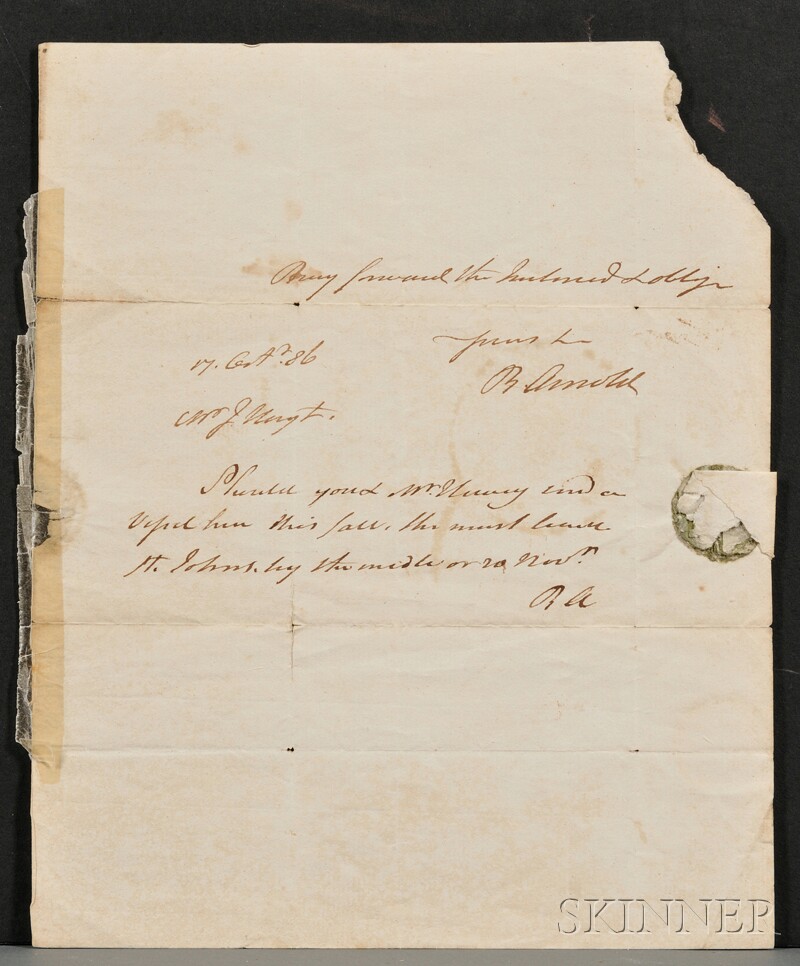 Pray forward the Inclosed & oblige
yours &c
17. Octr. 86
B Arnold
Mr J Hoyt.
Should you & Mr send a
Vessel here this fall, she must leave
St. Johns. by the midle or 20 Novr.
B A
SKINNER